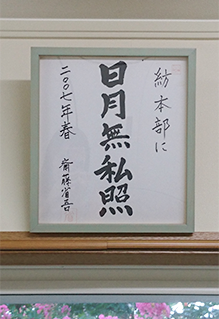 紡本部に
日月無私照
二〇〇七年春
齋藤省吾